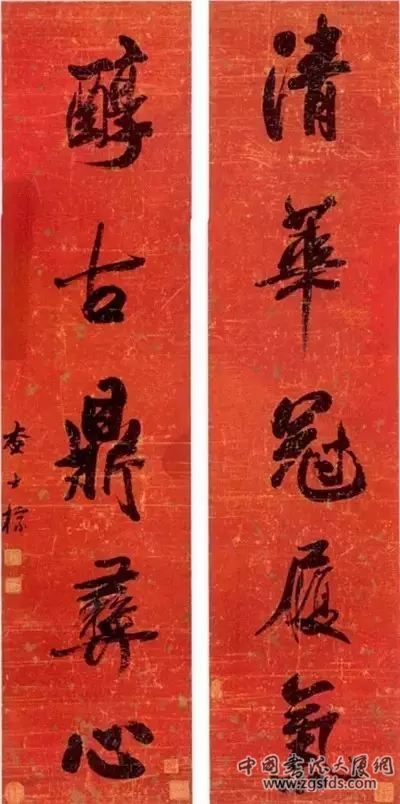 清華冠履氣
醇古鼎彝心
查士標
中國書法大展網
www.zgsfds.com